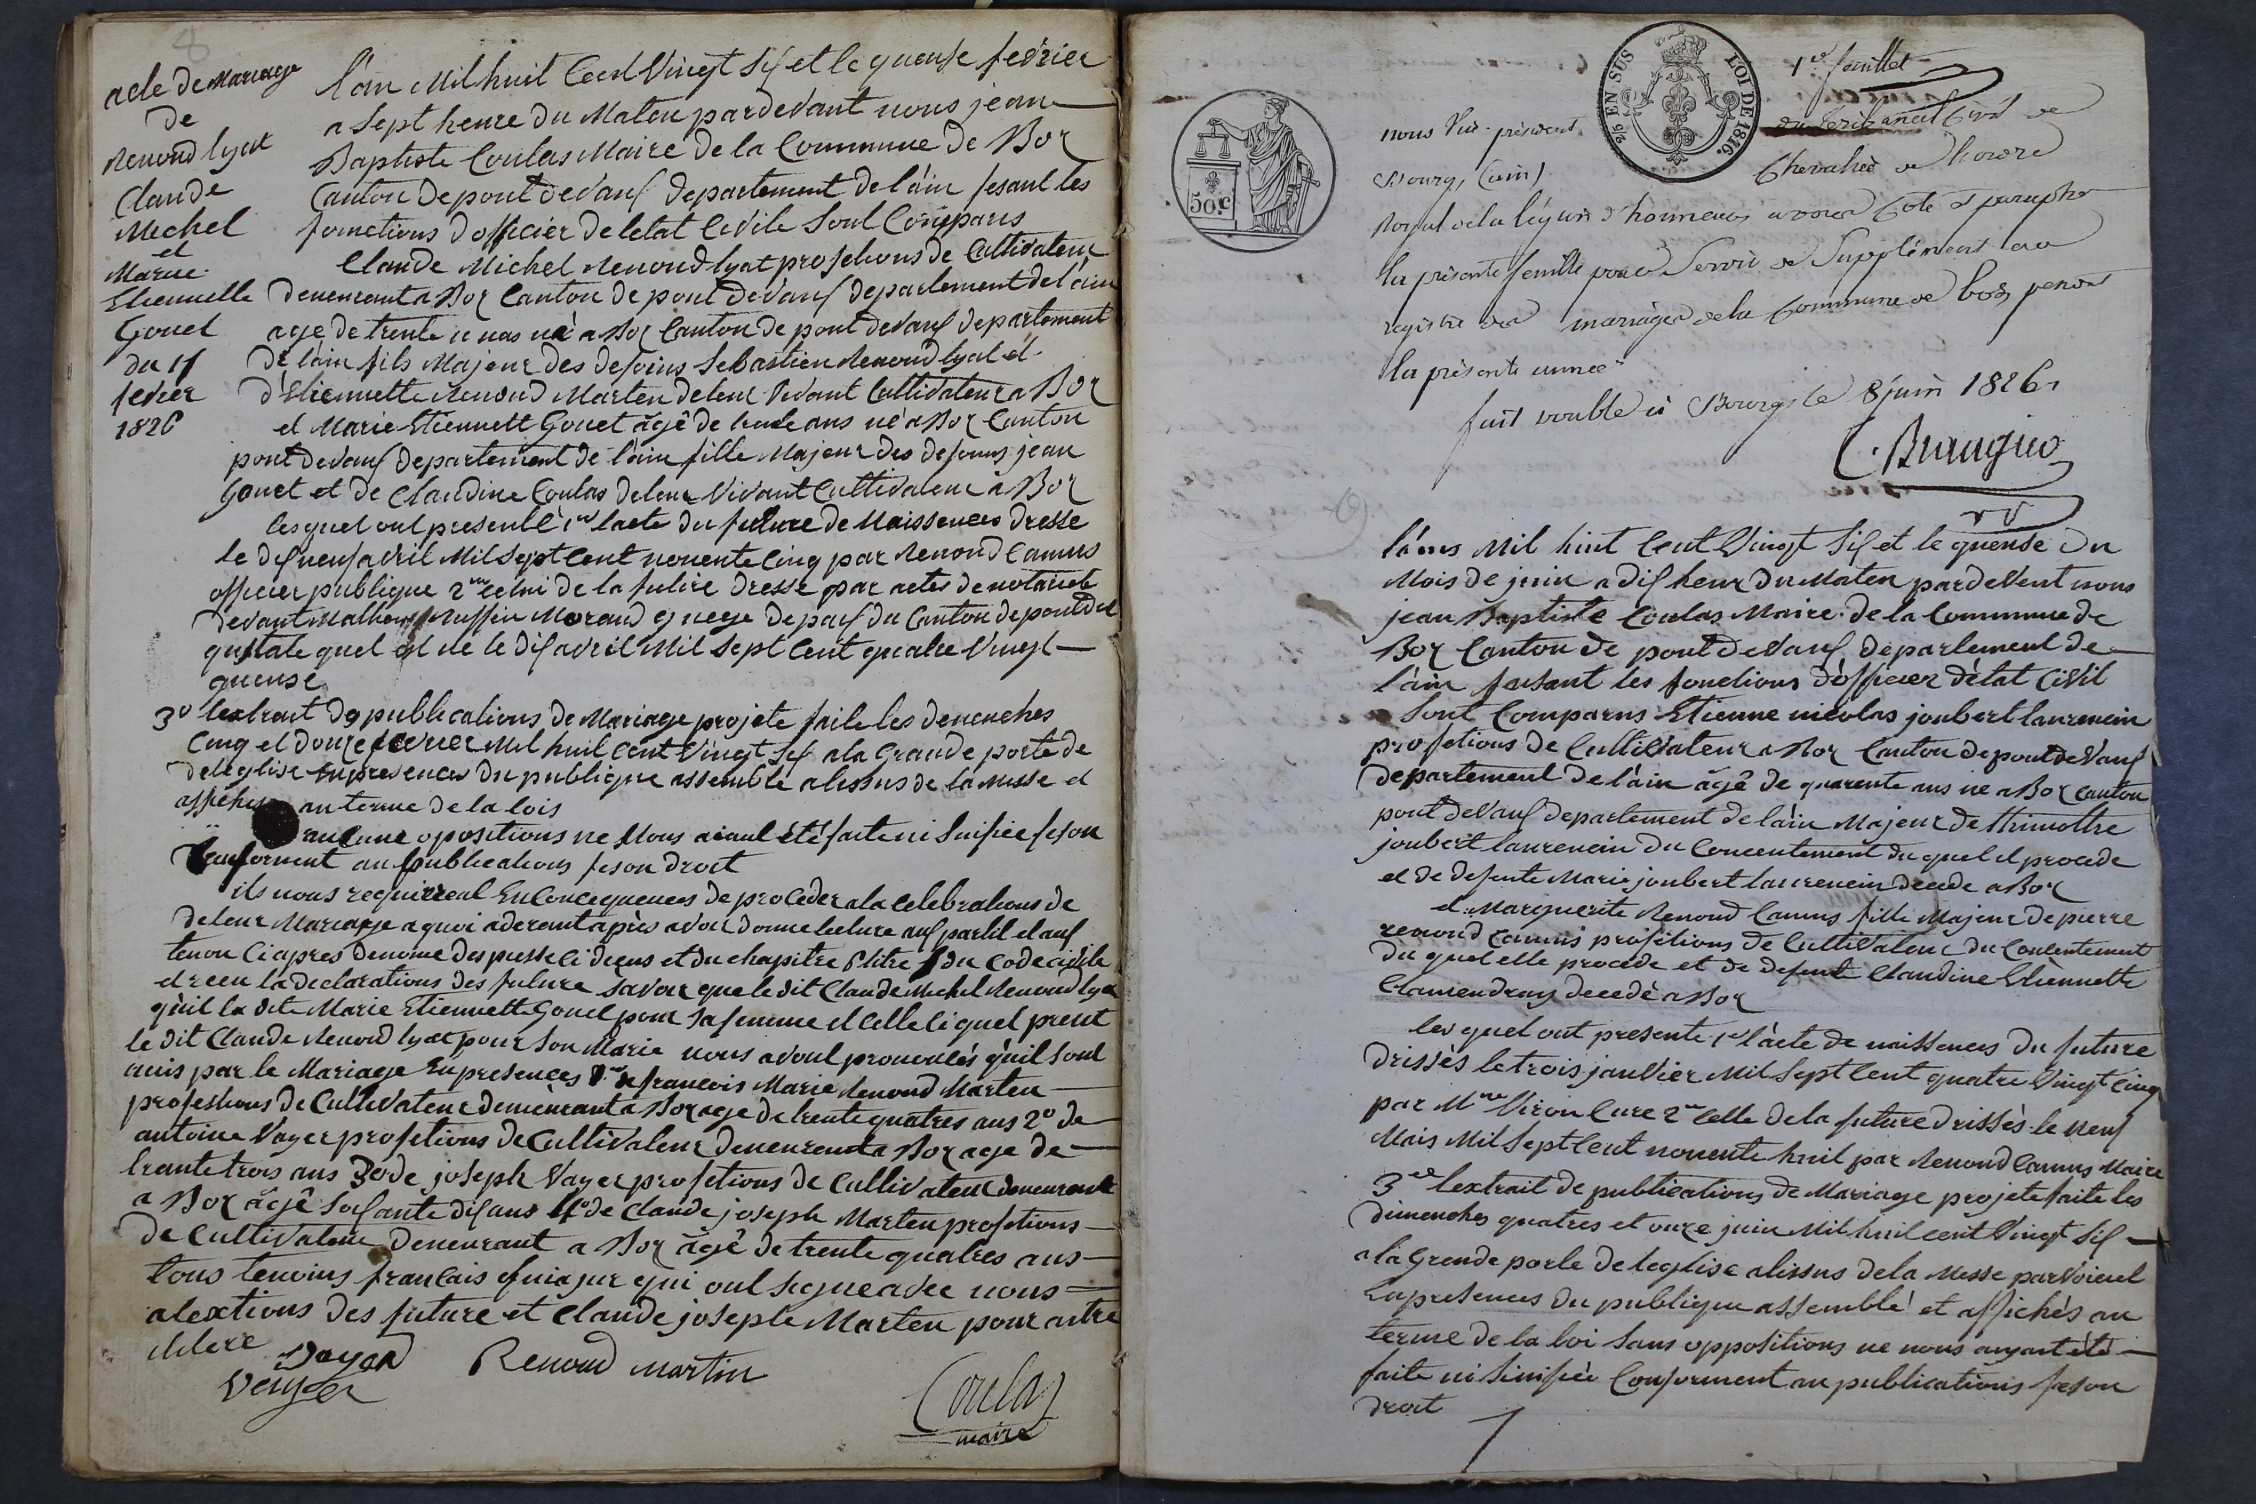 8
acte de Mariage
de
Renoud lyat
Claude
Michel
et
Marie
Etiennette
Gouet
du 15
fevrier
1826
l'an Mil huit Cent Vingt Six et le quense fevrier
a Sept heure du Maten pardevant nous jean
Baptiste Coulas Maire de la Commune de Boz
Canton de pont deVaux departement de l'ain fesant les
fonctions d'officier de letat Civile Sont Comparus
Claude Michel Renoud lyat profetions de Cultivateur
demeurant a Boz Canton de pont deVaux departement de l'ain
age de trente ans né a Boz Canton de pont deVaux departement
de l'ain fils Majeur des defoins Sebastien Renoud lyat et
d'Etiennette Renoud Marten deleur Vivant Cultivateur a Boz
et Marie Etiennett Gouet âgê de ans né a Boz Canton
pont deVaux departement de l'ain fille Majeur des defouns jean
Gouet et de Claudine Coulas deleur Vivant Cultivateur a Boz
lesquel out presenté 1er lacte du future de Naissences dresse
le dixneuf avril Mil Sept Cent novente Cinq par Renoud Camus
officier publique 2me celui de la future dresse par actes de notarieté
devant Ruffin Morand juge de paix du Canton de pont de
quel est né le dix avril Mil Sept Cent quatre Vingt
quense
3º lextrait de publications de Mariage projete faite les demenches
Cinq et douze fevrier Mil huit Cent Vingt Six a la Grande porte de
deleglise en presences du publique assemblé a lissus de la Messe et
affiches au terme de la lois
aucune opositions ne Nous aiant été faite ni Sinifiée feson
Conforment au publications feson droit
ils nous requirreat En Concequences de proceder a la Celebrations de
deleur Mariage a quoi aderant après avoir donne lecture aux partit et aux
temoin Ci apres denome des piesse Ci dicus et du chapitre 6 titre 5 du Code Civile
et recu la declarations des future Savoir que le dit Claude Michel Renoud lyat
qu'il la dite Marie Etiennette Gouet pour Sa femme et Celle Ci quel prent
le dit Claude Renoud lyat pour Son Marie nous avont prononcés qu'il Sont
unis par le Mariage En presences 1er de francois Marie Renoud Marten
profestions de Cultivateur demeurant a Boz age de trente quatres ans 2º de
antoine Vayer profetions de Cultivateur demeurant a Boz age de
trante trois ans 3º de joseph Vayer profetions de Cultivateur demeurant
a Boz âgê Soixante dix ans 4º de Claude joseph Marten profetions
de Cultivateur demeurant a Boz âgê de trente quatres ans
tous temoins francais qui out Signe avec nous
alextions des future et Claude joseph Marten pour autre
Vayer Renoud martin
Veuyer
Coulas
maire
25 EN SUS LOI DE 1816.
50.c
1er feuillet
nous Vice-président du tribunal Civil de
Bourg, (ain) Chevalier de l'ordre
Royal de la légion d'honneur, avons Coté et paraphé
la présente feuille pour Servir de Supplément au
registre des mariages de la Commune de boz, pendant
la présente année
fait double à Bourg, le 8 juin 1826
6
l'ans Mil huit Cent Vingt Six et le quense du
Mois de juin a dix heur du Maten pardevent nous
jean Baptiste Coulas Maire de la Commune de
Boz Canton de pont deVaux departement de
l'ain fesant les fonctions d'officier d'etat Civil
Sont Comparus Etienne nicolas joubert laurencin
profetions de Cultivateur a Boz Canton de pont deVaux
departement de l'ain âgê de quarente ans né a Boz Canton
pont deVaux departement de l'ain Majeur de thimothe
joubert laurencin du Concentement du quel il procede
et de defunte Marie joubert laurencin decede a Boz
et Marguerite Renoud Camus fille Majeur de pierre
renoud Camus profetions de Cultivateur du Contentement
du quel elle procede et de defunte Claudine Etiennette
decedé a Boz
les quel ont presente 1er l'acte de naissences du future
drissés le trois janvier Mil Sept Cent quatre Vingt Cinq
par Mre Viron Cure 2me Celle de la future drissés le neuf
Mais Mil Sept Cent novente huit par Renoud Camus Maire
3me lextrait de publications de Mariage projete faite les
dimenches quatres et onze juin Mil huit Cent Vingt Six
a la Grende porte de leglise a lissus de la Messe
En presences du publique assemblé et affichés au
terme de la loi Sans oppositions ne nous ayant été
faite ni Sinifiée Conforment au publications feson
droit